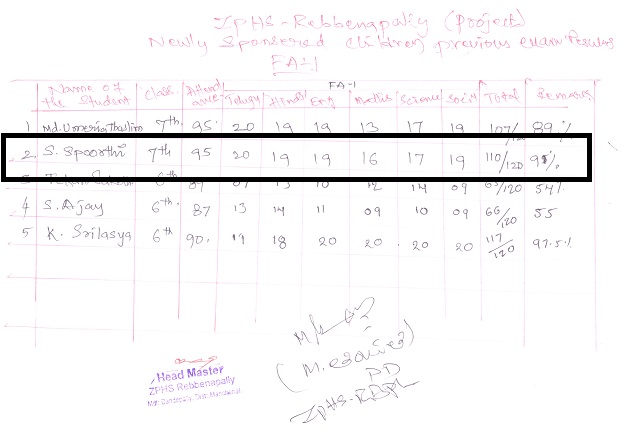 ZPHS-Rebbenapally (Project)
Newly Sponsered children previous exam Results
FA-1
Name of the Student Class Attendance FA-1 Telugu Hindi Eng Maths Science Social Total Remarks
1 7th 95 20 19 19 13 17 19 107/120 89.%
2. S. Spoorthi 7th 95 20 19 19 16 17 19 110/120 %
3 6th 87 09 /120 54%
4 S. Ajay 6th 87 13 14 11 09 10 09 66/120 55
5 K. Srilasya 6th 90. 19 18 20 20 20 20 117/120 97.5%
Head Master
ZPHS Rebbenapally
PD
ZPHS-RBPL